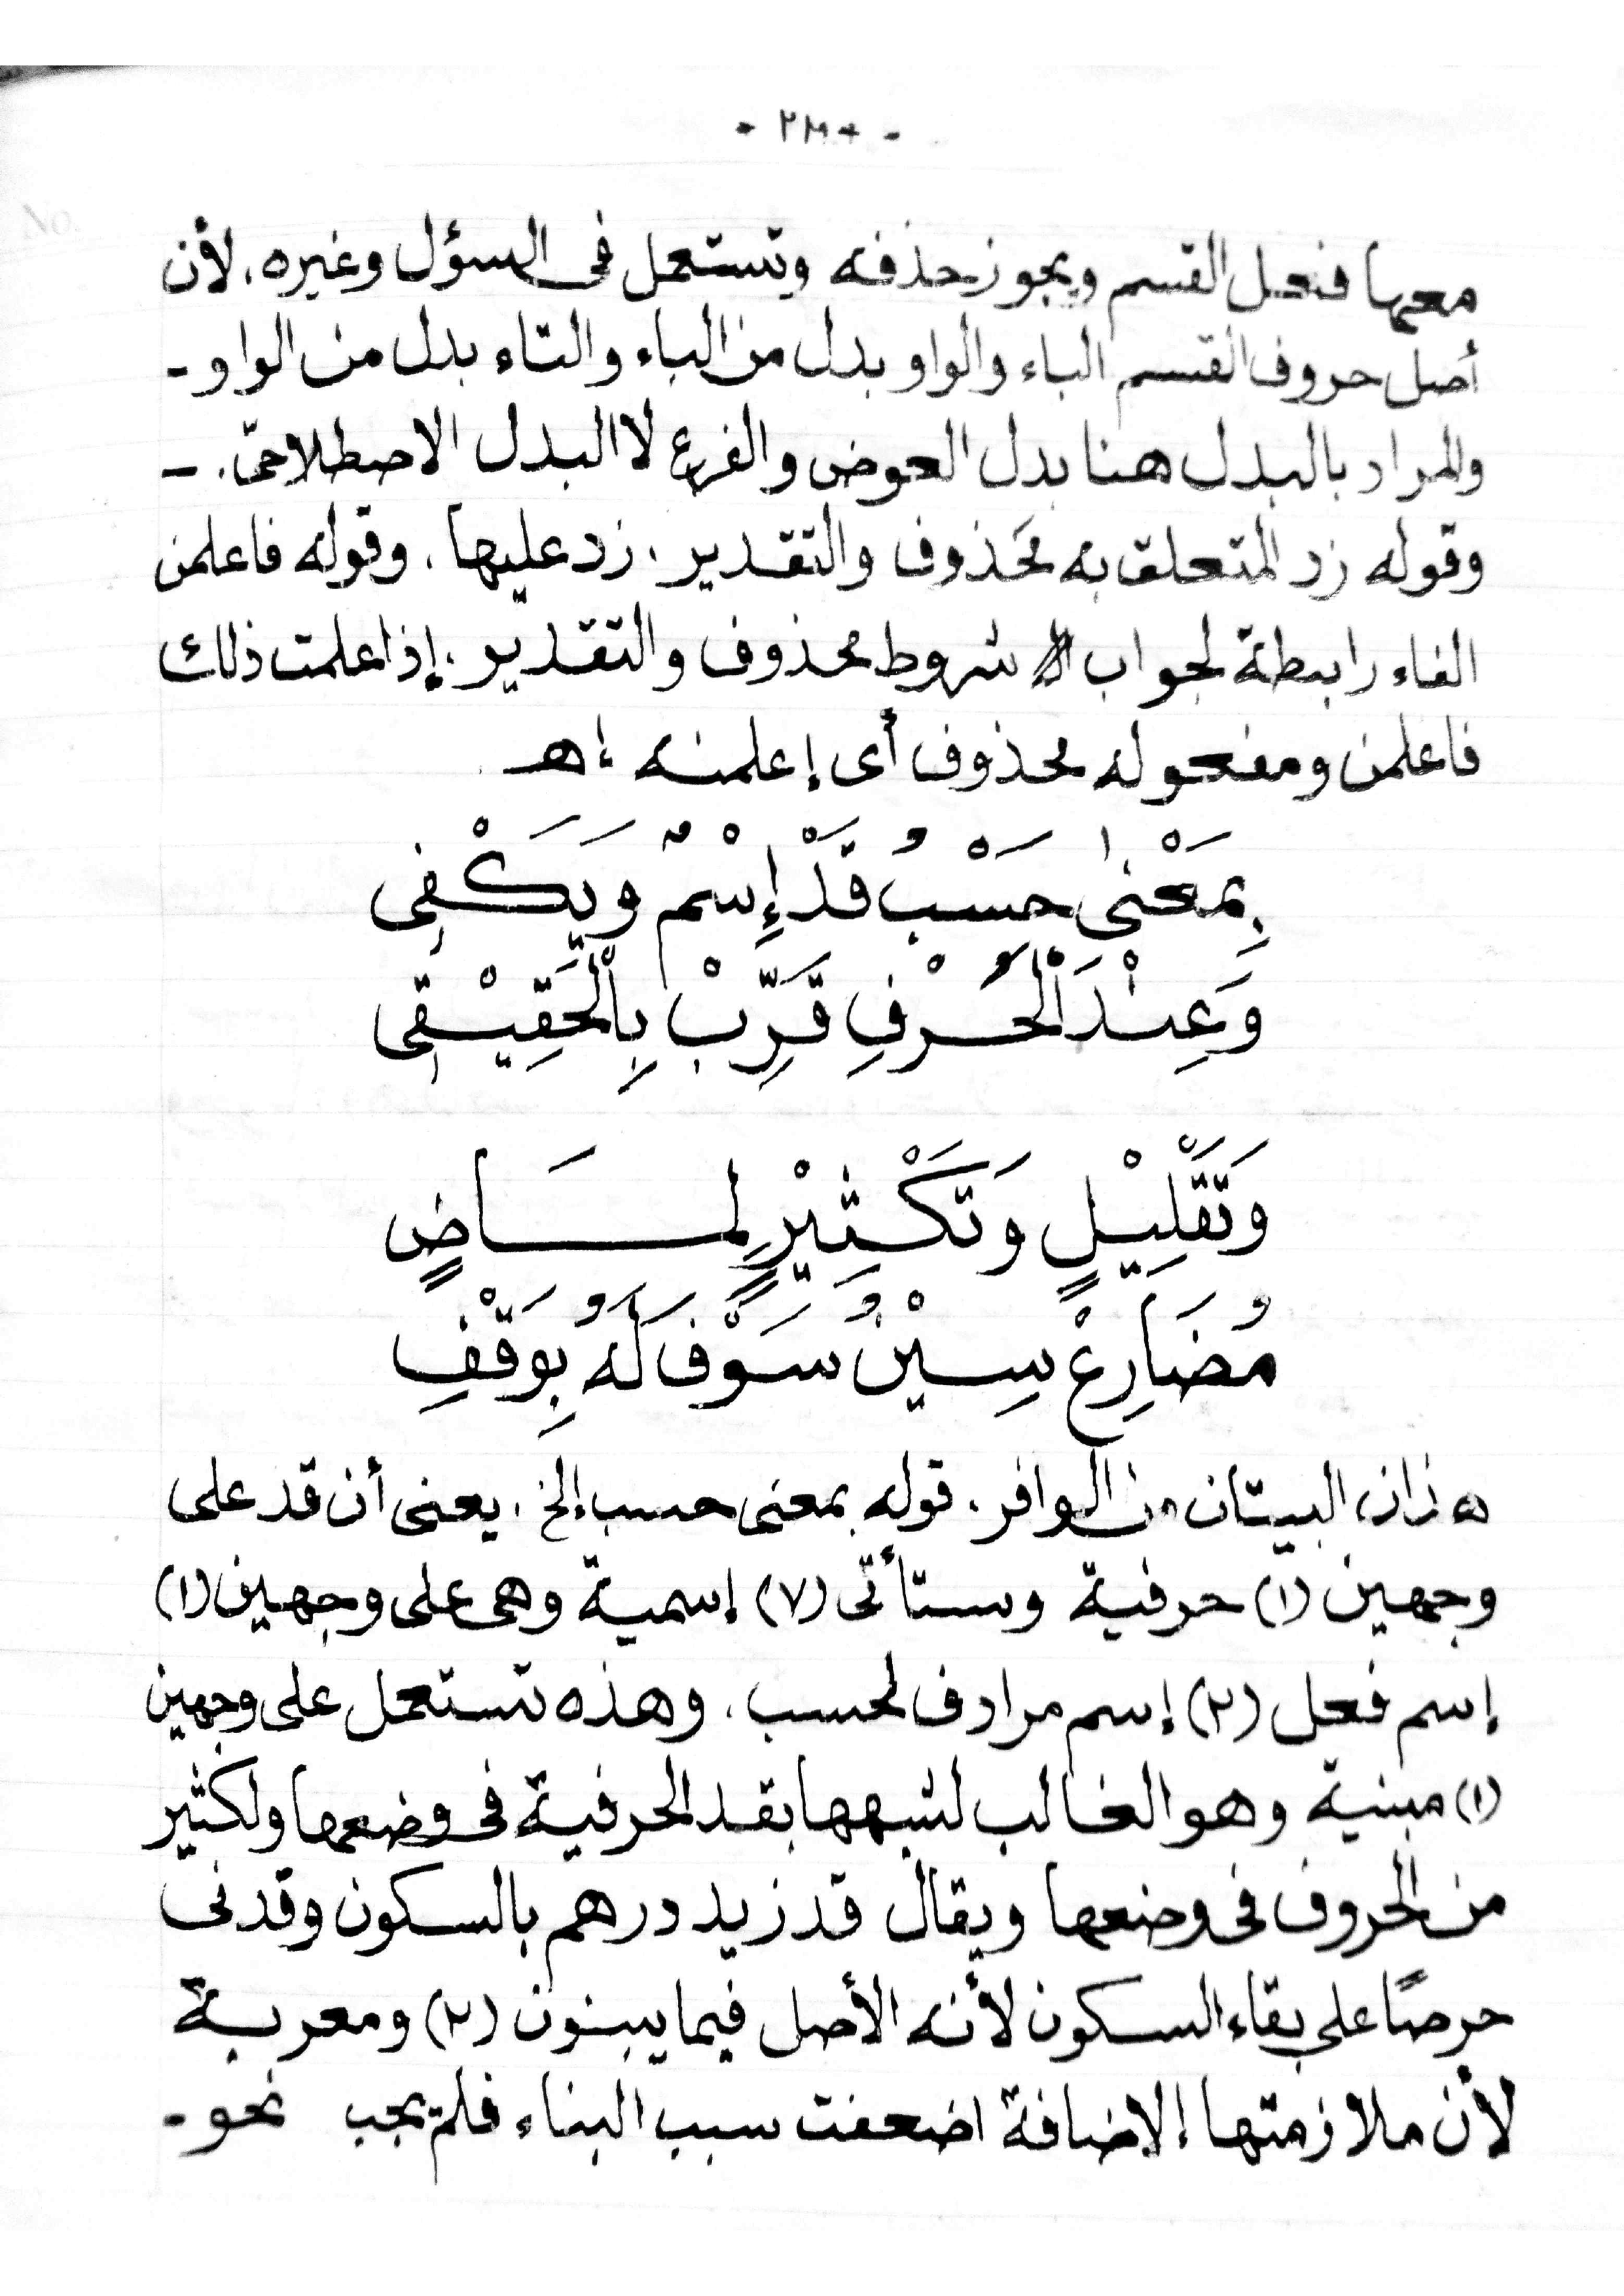 - ٢٣٠ -
معها فعل القسم ويجوز حذفه وتستعمل فى السؤل وغيره، لأن
أصل حروف القسم الباء والواو بدل من الباء والتاء بدل من الواو -
والمراد بالبدل هنا بدل العوض والفرع لا البدل الاصطلاحىّ. -
وقوله زد المتعلق به مَحذوف والتقدير، زد عليها، وقوله فاعلمن
الفاء رابطة لجواب شروط محذوف والتقدير، إذا علمت ذلك
فاعلمن ومفعوله محذوف أى إعلمنه إهـ
بِمَعْنىٰ حَسْبُ قَدْ إِسْمٌ وَيَكْفِى
وَعِنْدَ الْحَرْفِ قَرِّبْ بِالْحَقِيْقِى
وَتَقْلِيْلٍ وَتَكْثِيْرٍ لِمَاضٍ
مُضَارِعْ سِيْنُ سَوْفَ لَهُ بِوَقْفِ
هذان البيتان من الوافر. قوله بمعنى حسب إلخ، يعنى أن قد على
وجهين (١) حرفية وستأتى (٧) إسمية وهى على وجهين (١)
إسم فعل (٢) إسم مرادف لحسب، وهذه تستعمل على وجهين
(١) مبنية وهو الغالب لشبهها بقد الحرفية فى وضعها ولكثير
من الحروف فى وضعها ويقال قد زيد درهم بالسكون وقدنى
حرصًا على بقاء السكون لأنه الأصل فيما يبنون (٢) ومعربة
لأن ملازمتها إلاضافة اضعفت سبب البناء فلم يجب نحو -